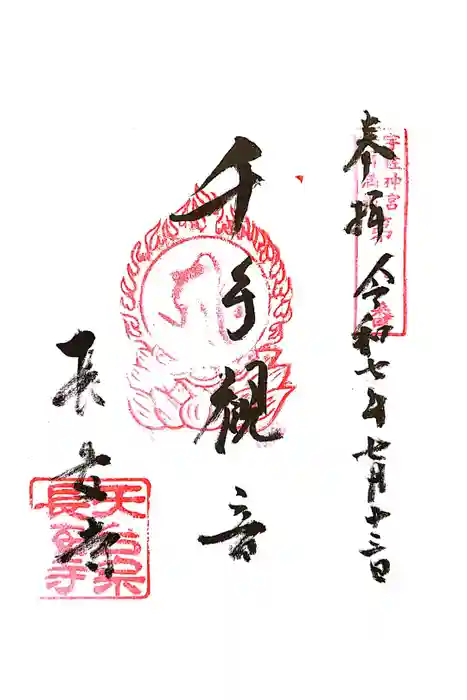 奉拝 令和七年七月十三日
宇佐神宮
千手観音
長安寺
天台宗
長安寺